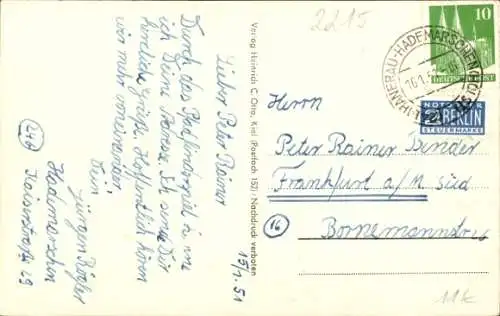 2215
15/1. 51
Lieber Peter Rainer
Durch das Pfadfinderspiel in uns
ich Deine Adresse. Ich sende Dir
herzliche Grüße. Hoffentlich hören
wir mehr voneinander
Dein
Jürgen
Hademarschen
Kaiserstraße 29
(24b)
Verlag Heinrich C. Otto, Kiel (Postfach 152) · Nachdruck verboten
HANERAU-HADEMARSCHEN (HOLST)
10
DEUTSCHE POST
NOTOPFER
2 BERLIN
STEUERMARKE
Herrn
Peter Rainer Bender
Frankfurt a/M Süd
(16)
Bornemannstr
11K